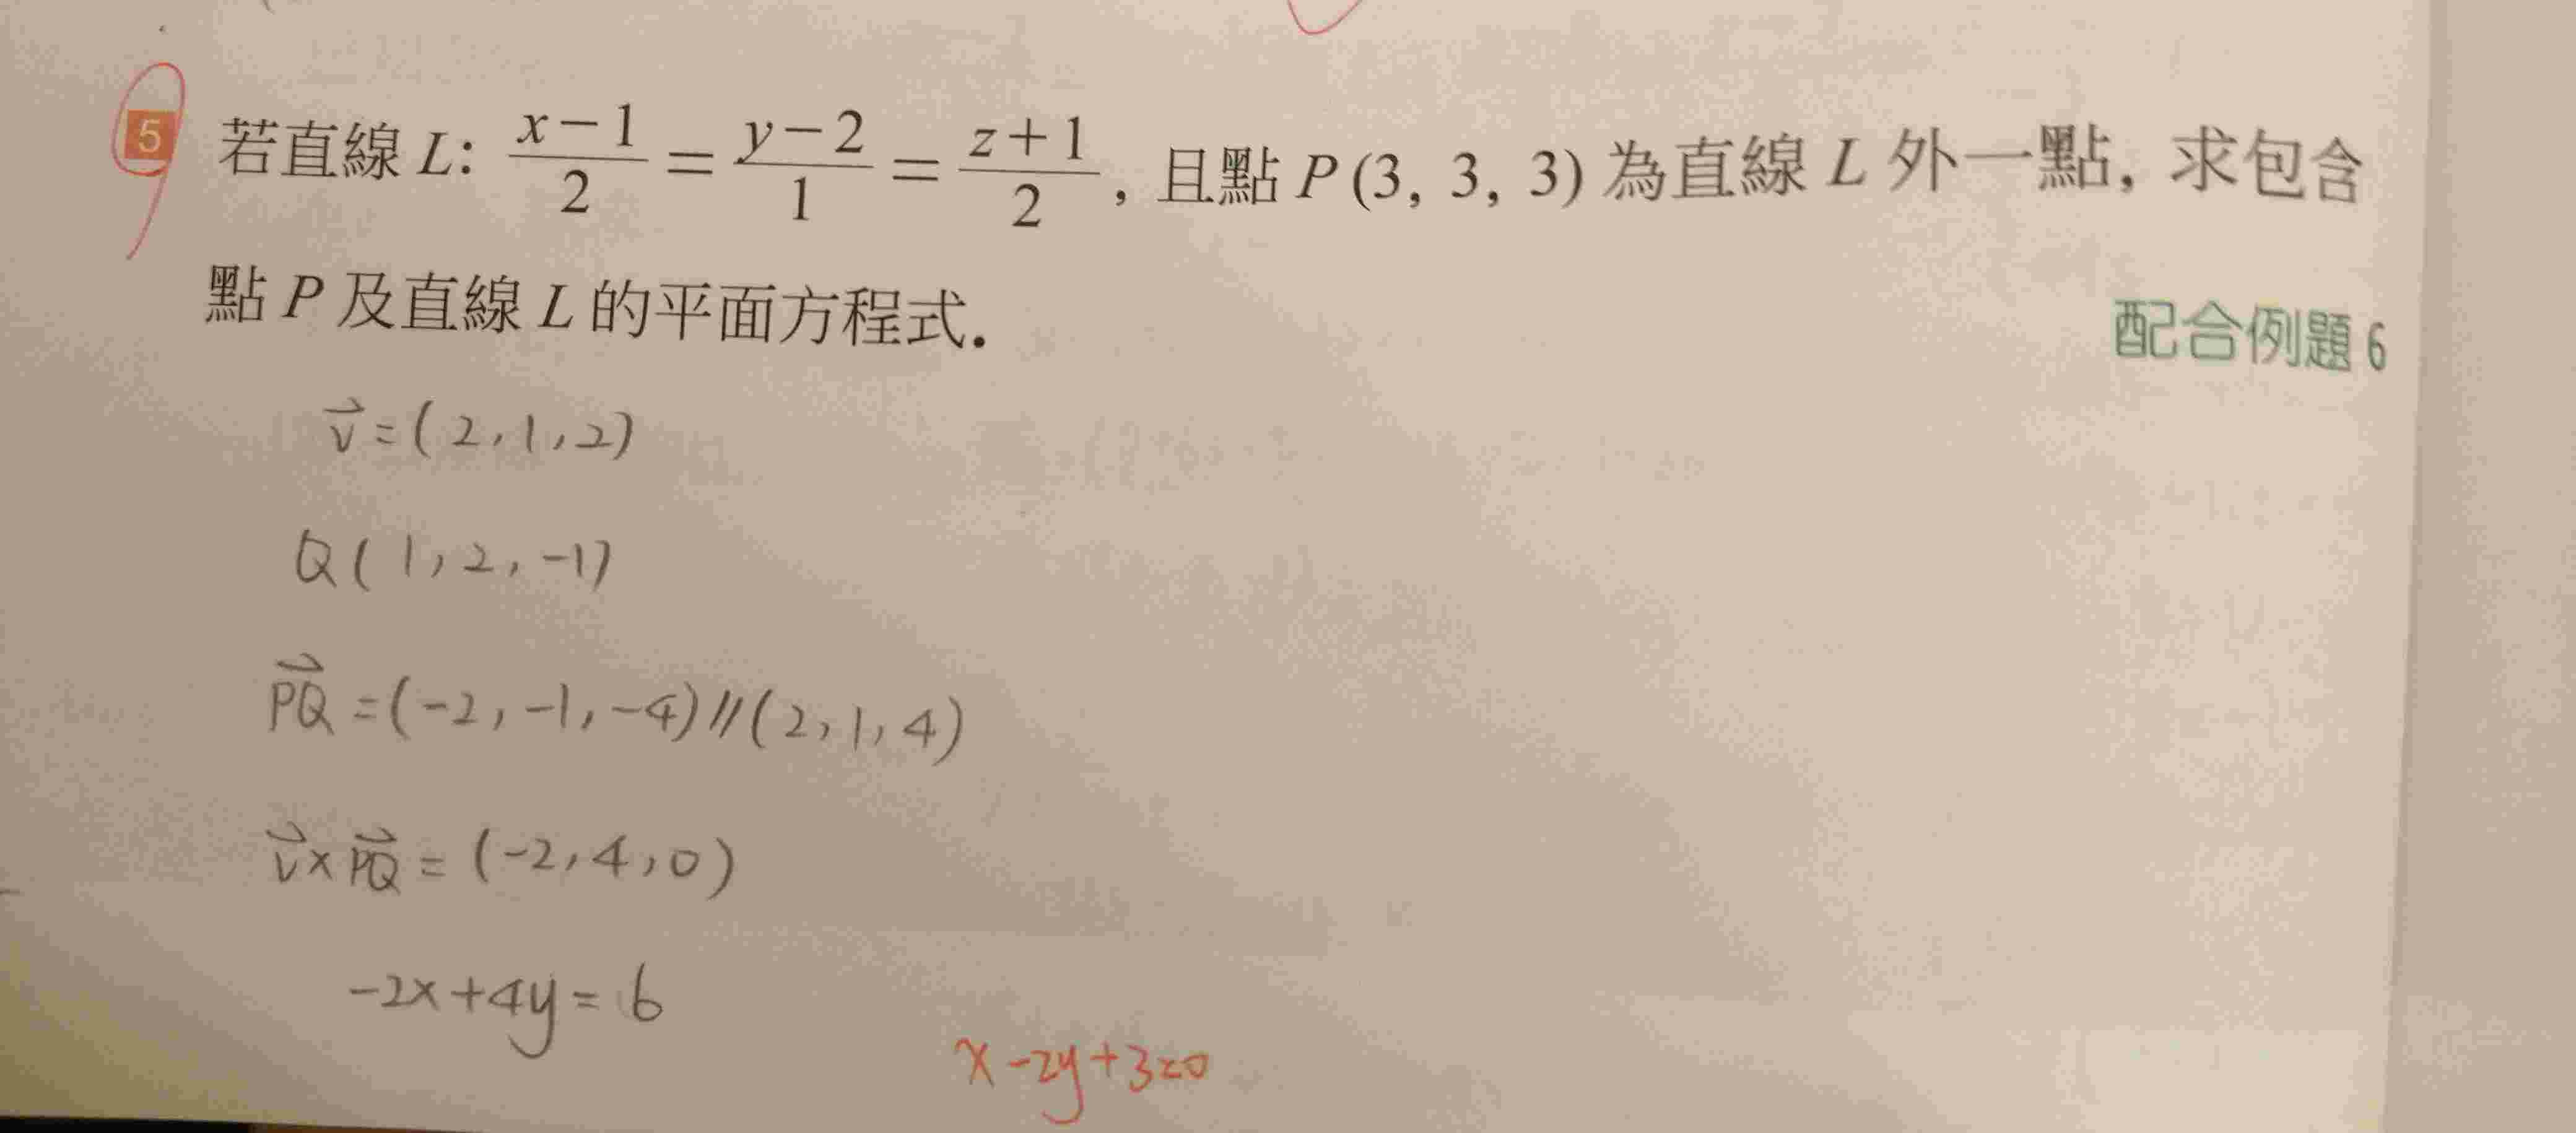 5 若直線 L: \frac{x-1}{2} = \frac{y-2}{1} = \frac{z+1}{2}, 且點 P(3, 3, 3) 為直線 L 外一點, 求包含
點 P 及直線 L 的平面方程式.
配合例題 6
\vec{v} = (2, 1, 2)
Q(1, 2, -1)
\vec{PQ} = (-2, -1, -4) // (2, 1, 4)
\vec{v} × \vec{PQ} = (-2, 4, 0)
-2x+4y = 6
x-2y+3=0